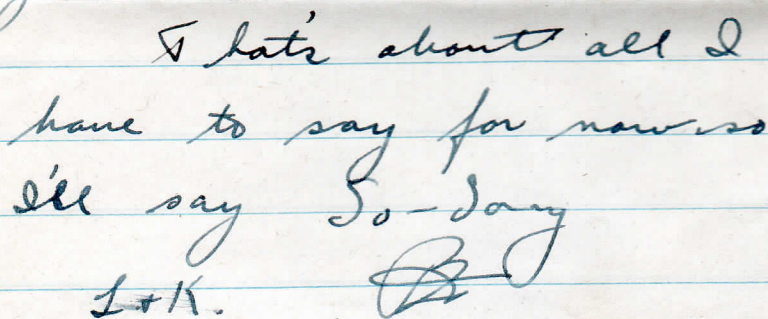 That's about all I
have to say for now so
I'll say So-Long
L+K.